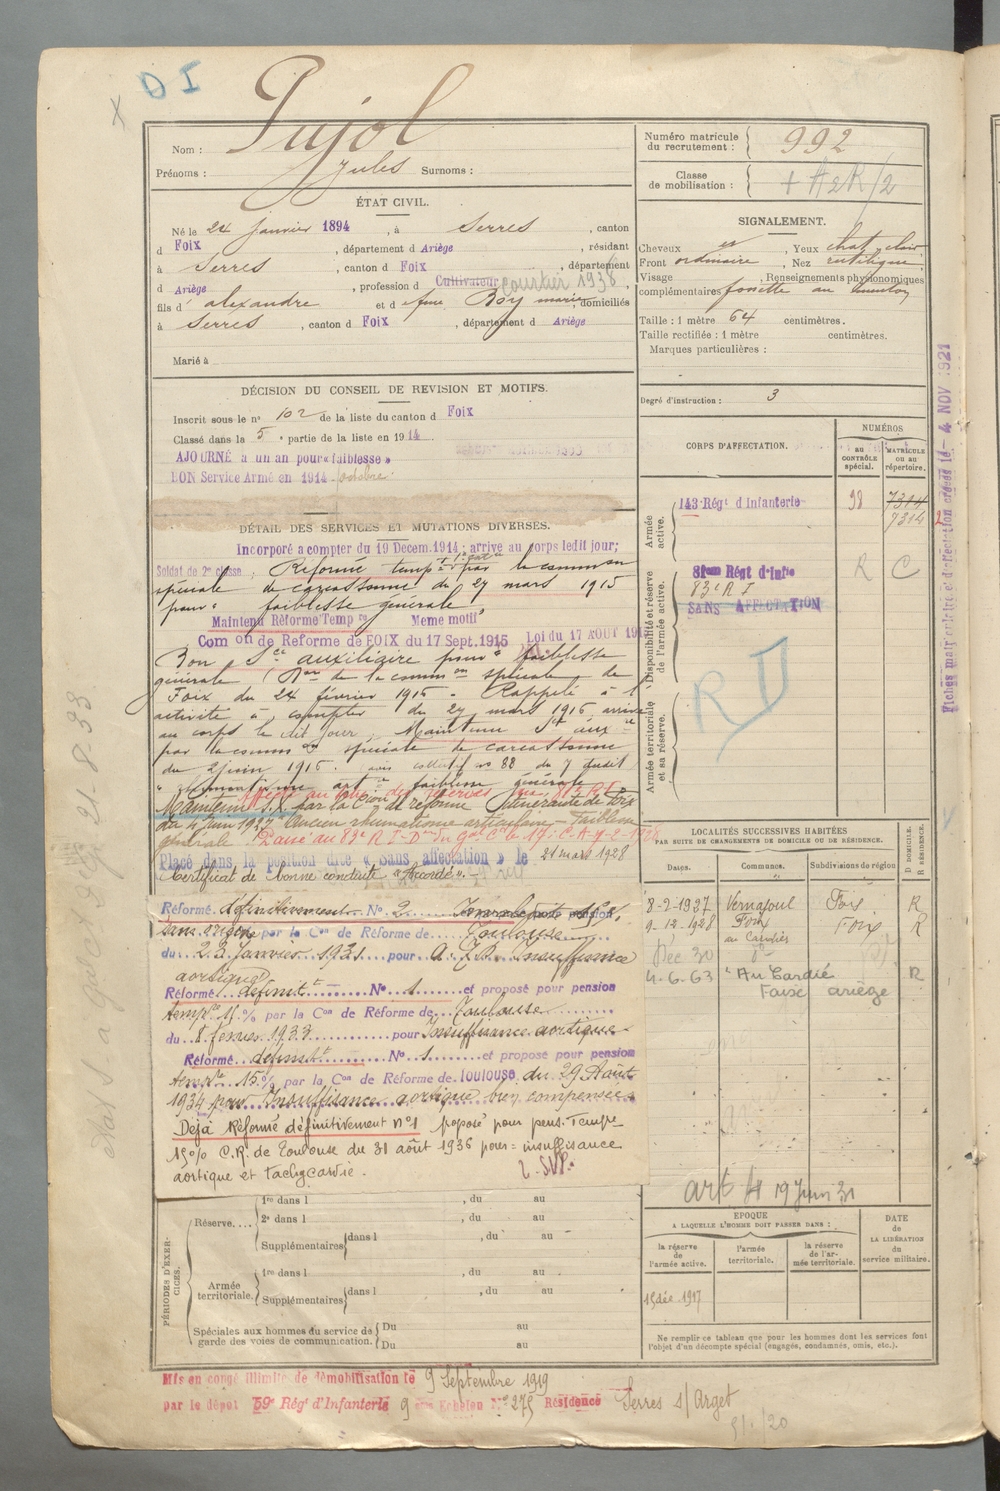 D I
Nom : Pujol
Prénoms : Jules Surnoms :
Numéro matricule du recrutement : 992
Classe de mobilisation :
ÉTAT CIVIL.
Né le 24 janvier 1894, à Serres, canton
d Foix, département d Ariège, résidant
à Serres, canton d Foix, département
d Ariège, profession d Cultivateur courtier 1938,
fils d' alexandre et d feue Roy marie, domiciliés
à Serres, canton d Foix, département d Ariège
Marié à
SIGNALEMENT.
Cheveux , Yeux chat. clair
Front ordinaire, Nez rectiligne,
Visage , Renseignements physionomiques
complémentaires fossette au menton
Taille : 1 mètre 64 centimètres.
Taille rectifiée : 1 mètre centimètres.
Marques particulières :
Degré d'instruction : 3
DÉCISION DU CONSEIL DE REVISION ET MOTIFS.
Inscrit sous le n° 102 de la liste du canton d Foix
Classé dans la 5e partie de la liste en 1914
AJOURNÉ à un an pour « faiblesse »
BON Service Armé en 1914 octobre
DÉTAIL DES SERVICES ET MUTATIONS DIVERSES.
Incorporé à compter du 19 Decem. 1914 ; arrivé au corps ledit jour;
Soldat de 2e classe, Réformé tempre par la common
spéciale de Carcassonne du 27 mars 1915
pour " faiblesse générale "
Maintenu Réforme Temp re Meme motif
Com on de Reforme de FOIX du 17 Sept. 1915 Loi du 17 AOUT 1915
Bon Sce auxiliaire pour " faiblesse
générale ( on de la common spéciale de
Foix du 24 février 1916 - Rappelé à l'
activité à compter du 27 mars 1916 arrivé
au corps le dit jour. Maintenu Sce aux re
par la commion spéciale de Carcassonne
du 2 juin 1916. avis collectif no 88 du 7 dudit
faiblesse générale
Maintenu S.X. par la Cion de réforme de Foix
du 4 juin 1927 " Ancien rhumatisme articulaire - faiblesse
générale Passé au 83e R I
Placé dans la position dite « Sans affectation » le 21 mars 1928
Certificat de bonne conduite "Accordé".
Réformé définitivement N° 2 pension
par la Con de Réforme de Toulouse
du 23 Janvier 1931 pour Insuffisance
aortique
Réformé définitt N° 1 et proposé pour pension
tempre % par la Con de Réforme de Toulouse
du 8 1933 pour Insuffisance aortique
Réformé définitt N° 1 et proposé pour pension
tempre 15 % par la Con de Réforme de TOULOUSE du 29 Août
1934 pour Insuffisance aortique bien compensée
Déjà Réformé définitivement n°1 proposé pour pens. Tempre
15% C.R. de Toulouse du 31 août 1936 pour : insuffisance
aortique et tachycardie.
T. SVP.
CORPS D'AFFECTATION.
NUMÉROS
au CONTRÔLE spécial.
MATRICULE ou au répertoire.
Armée active.
143e Régt d'Infanterie 98 7314
7314
Disponibilité et réserve de l'armée active.
81eme Régt d'Infie R C
83e R I
SANS AFFECTATION
Armée territoriale et sa réserve.
LOCALITÉS SUCCESSIVES HABITÉES
PAR SUITE DE CHANGEMENTS DE DOMICILE OU DE RÉSIDENCE.
Dates. Communes. Subdivisions de région D DOMICILE. R RÉSIDENCE.
8-2-1927 Vernajoul Foix R
9-12-1928 Foix Foix R
Déc 30
4-6-63 "Au Cardié R
Foix ariège
art 4 19 Juin 31
EPOQUE
A LAQUELLE L'HOMME DOIT PASSER DANS :
la réserve de l'armée active.
l'armée territoriale.
la réserve de l'armée territoriale.
DATE de LA LIBÉRATION du service militaire.
15 déc. 1917
Ne remplir ce tableau que pour les hommes dont les services font
l'objet d'un décompte spécial (engagés, condamnés, omis, etc.).
PÉRIODES D'EXERCICES.
Réserve....
1re dans l , du au
2e dans l , du au
Supplémentaires dans l , du au
Armée territoriale.
1re dans l , du au
Supplémentaires dans l , du au
Spéciales aux hommes du service de garde des voies de communication.
Du au
Du au
Mis en congé illimité de démobilisation le 9 Septembre 1919
par le dépôt 59e Régt d'Infanterie 9 ème Echelon N° 275 Résidence Serres s/ Arget
Fiches matriculaire et d'affectation créées le - 4 NOV 1921